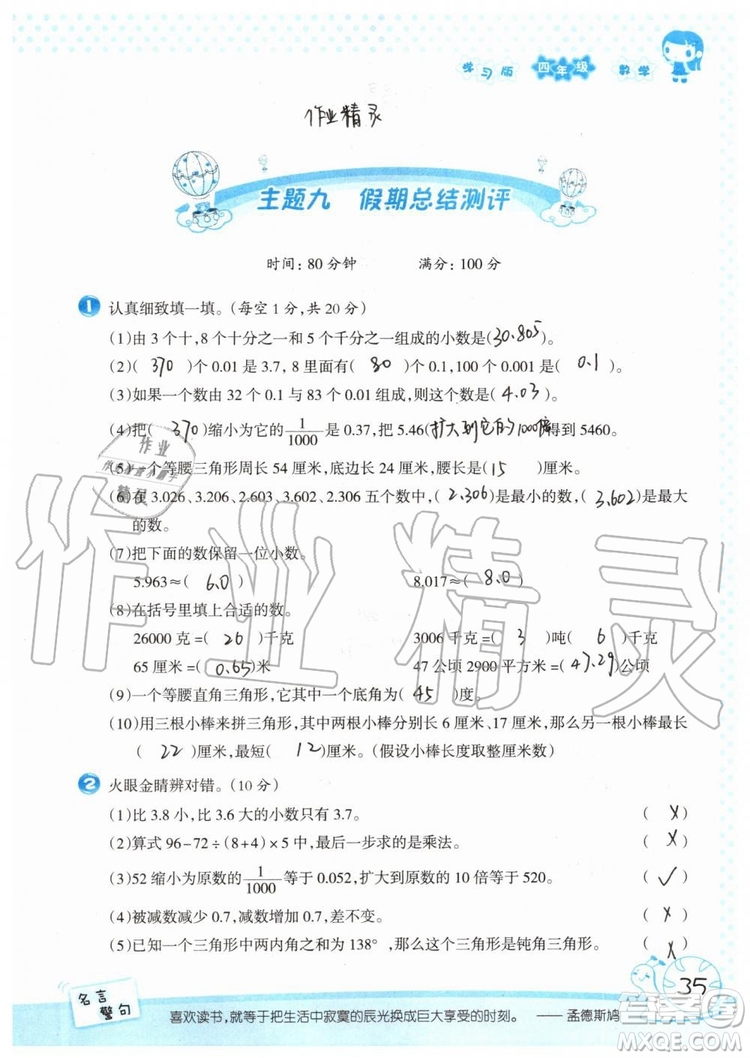 学习版 四年级 数学
作业精灵
主题九 假期总结测评
时间:80分钟 满分:100分
1 认真细致填一填。(每空1分,共20分)
(1)由3个十,8个十分之一和5个千分之一组成的小数是(30.805)。
(2)( 370 )个0.01是3.7,8里面有( 80 )个0.1,100个0.001是( 0.1 )。
(3)如果一个数由32个0.1与83个0.01组成,则这个数是( 4.03 )。
(4)把( 370 )缩小为它的1/1000是0.37,把5.46(扩大到它的1000倍)得到5460。
(5)一个等腰三角形周长54厘米,底边长24厘米,腰长是( 15 )厘米。
(6)在3.026、3.206、2.603、3.602、2.306五个数中,( 2.306 )是最小的数,( 3.602 )是最大
的数。
(7)把下面的数保留一位小数。
5.963≈( 6.0 ) 8.017≈( 8.0 )
(8)在括号里填上合适的数。
26000克=( 26 )千克 3006千克=( 3 )吨( 6 )千克
65厘米=( 0.65 )米 47公顷2900平方米=( 47.29 )公顷
(9)一个等腰直角三角形,它的一个底角是( 45 )度。
(10)用三根小棒来拼三角形,其中两根小棒分别长6厘米、17厘米,那么另一根小棒最长
( 22 )厘米,最短( 12 )厘米。(假设小棒长度取整厘米数)
2 火眼金睛辨对错。(10分)
(1)比3.8小,比3.6大的小数只有3.7。 ( × )
(2)算式96-72÷(8+4)×5中,最后一步求的是乘法。 ( × )
(3)52缩小为原数的1/1000等于0.052,扩大到原数的10倍等于520。 ( ✓ )
(4)被减数减少1,减数增加1,差不变。 ( × )
(5)已知一个三角形中两内角之和为138°,那么这个三角形是钝角三角形。 ( × )
35
名言警句
喜欢读书,就等于把生活中寂寞的辰光换成巨大享受的时刻。 ——孟德斯鸠